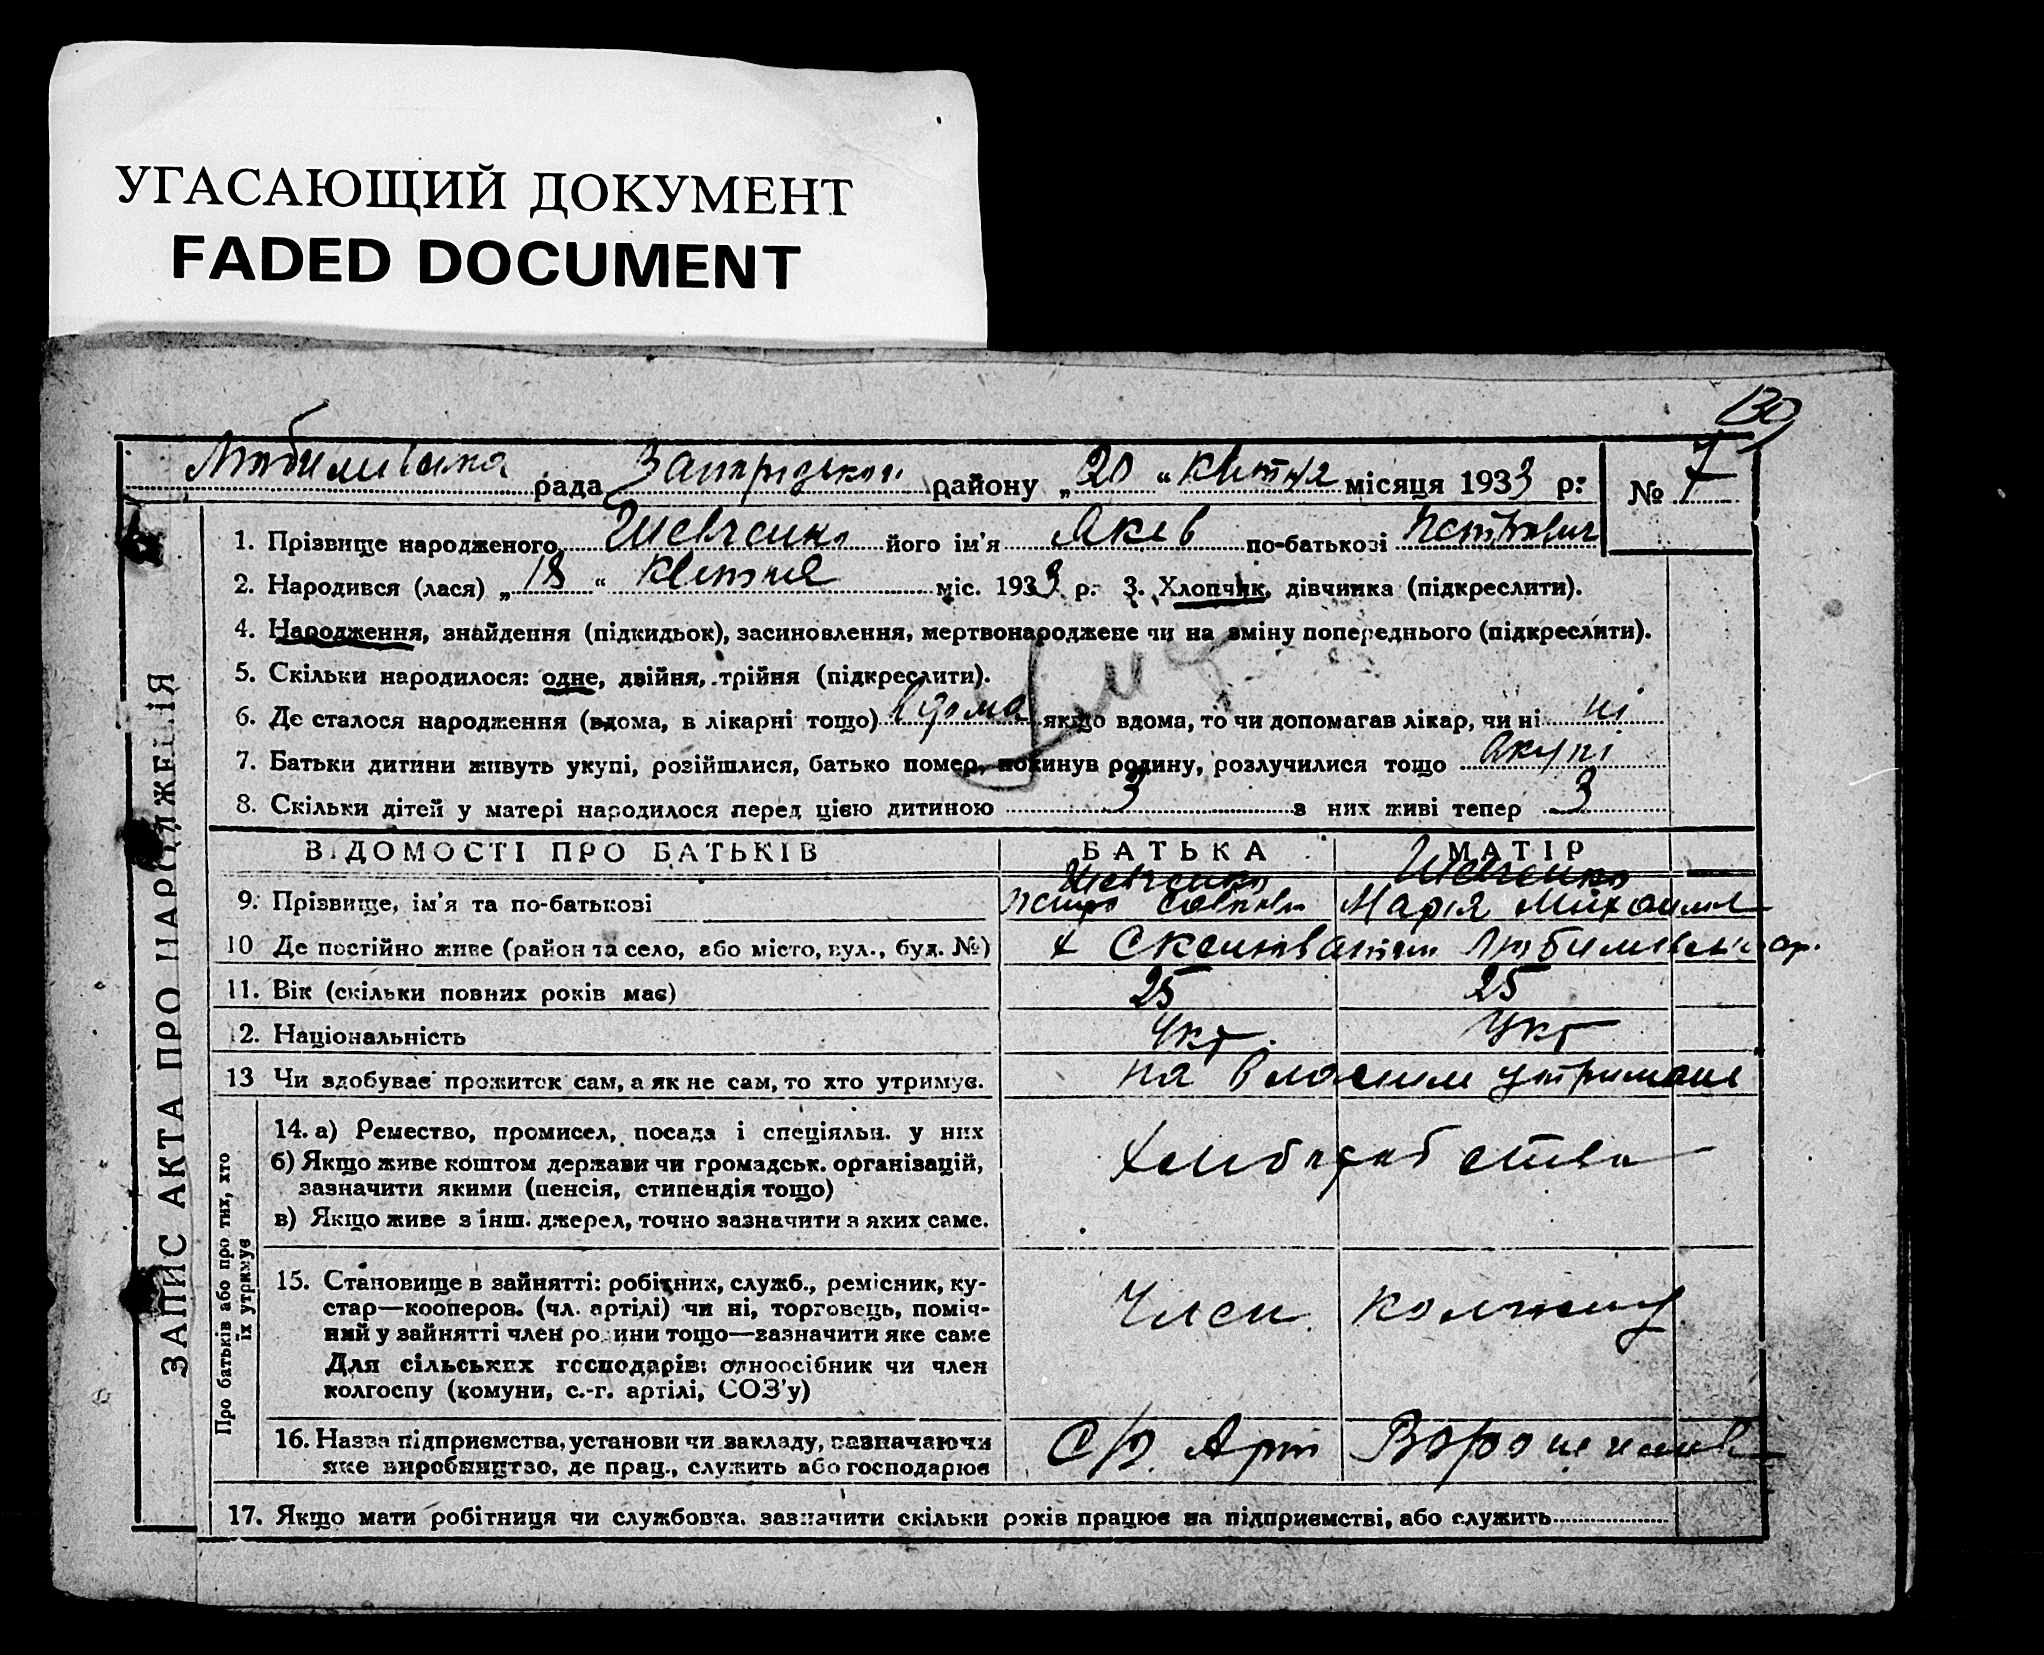 УГАСАЮЩИЙ ДОКУМЕНТ
FADED DOCUMENT
130
Любимівська рада Запорізького району „20“ квітня місяця 1933 р: № 7
ЗАПИС АКТА ПРО НАРОДЖЕННЯ
1. Прізвище народженого Шевченко його ім'я Яків по-батькові Петрович
2. Народився (лася) „18“ квітня міс. 1933 р. 3. Хлопчик, дівчинка (підкреслити).
4. Народження, знайдення (підкидьок), засиновлення, мертвонароджене чи на зміну попереднього (підкреслити).
5. Скільки народилося: одне, двійня, трійня (підкреслити).
6. Де сталося народження (вдома, в лікарні тощо) вдома якщо вдома, то чи допомагав лікар, чи ні ні
7. Батьки дитини живуть укупі, розійшлися, батько помер, покинув родину, розлучилися тощо вкупі
8. Скільки дітей у матері народилося перед цією дитиною 3 з них живі тепер 3
ВІДОМОСТІ ПРО БАТЬКІВ БАТЬКА МАТІР
Шевченко Шевченко
9. Прізвище, ім'я та по-батькові Петро Мария
10 Де постійно живе (район та село, або місто, вул., буд. №) х
11. Вік (скільки повних років має) 25 25
12. Національність Укр. Укр
13 Чи здобуває прожиток сам, а як не сам, то хто утримує. на власнім
Про батьків або про тих, хто
їх утримує
14. а) Ремество, промисел, посада і спеціяльн. у них
б) Якщо живе коштом держави чи громадськ. організацій,
зазначити якими (пенсія, стипендія тощо)
в) Якщо живе з інш. джерел, точно зазначити з яких саме.
15. Становище в зайнятті: робітник, служб., ремісник, ку-
стар—кооперов. (чл. артілі) чи ні, торговець, поміч-
ний у зайнятті член родини тощо—зазначити яке саме
Член колгоспу
Для сільських господарів: одноосібник чи член
колгоспу (комуни, с.-г. артілі, СОЗ'у)
16. Назва підприємства, установи чи закладу, зазначаючи
яке виробництво, де прац., служить або господарює
Арт
17. Якщо мати робітниця чи службовка. зазначити скільки років працює на підприємстві, або служить